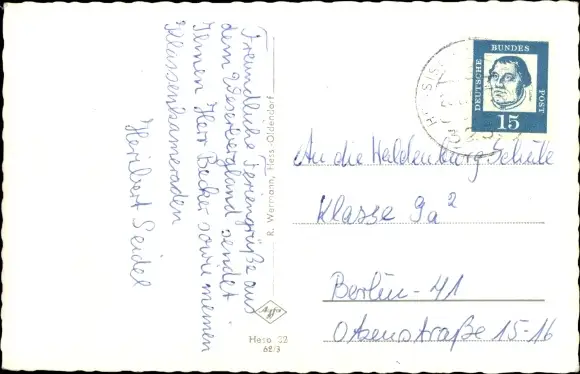 Freundliche Feriengrüße aus
dem Weserbergland sendet
Ihnen Herr Becker sowie meinen
Klassenkameraden
Heribert Seidel
R. Wermann, Hess.-Oldendorf
Agfa
Heso 22
62/3
DEUTSCHE
BUNDES
POST
15
An die Waldenburg Schule
Klasse 9a²
Berlin - 41
Otzenstraße 15-16